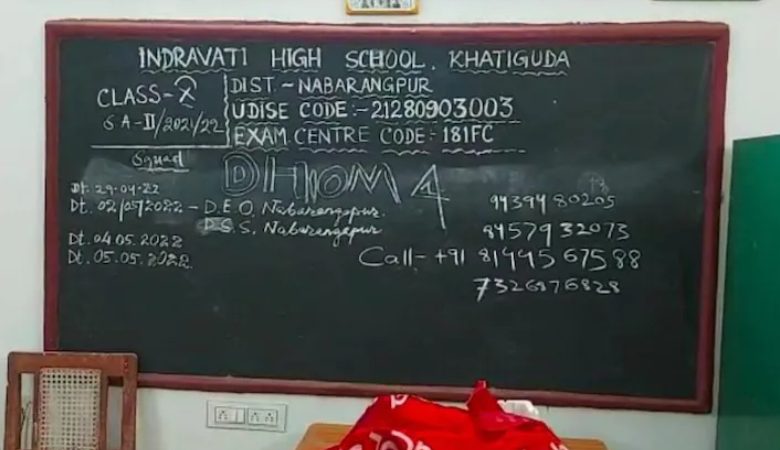 INDRAVATI HIGH SCHOOL. KHATIGUDA
CLASS-X
SA-II/2021/22
DIST-NABARANGPUR
UDISE CODE:-21280903003
EXAM CENTRE CODE:-181FC
Squad
DHOM 4
Dt. 29.04.22
Dt. 02/05/2022 - D.E.O. Nabarangapur.
D.S.S. Nabarangapur
Dt. 04.05.2022
Dt. 05.05.2022
9439480205
8457932073
Call- +91 8144567588
7326876828